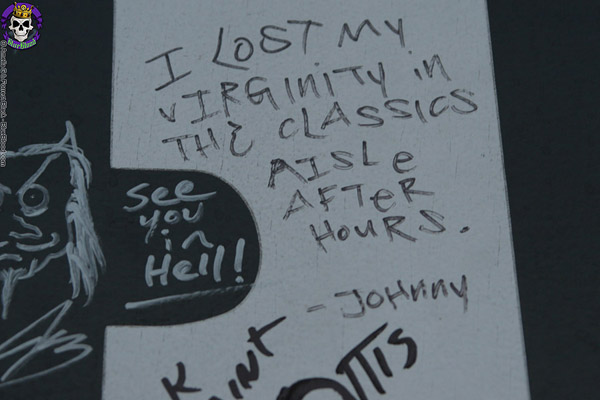 I LOST MY
VIRGINITY in
THE CLASSICS
AISLE
AFTER
HOURS.
- JOHNNY
See
you
in
Hell!